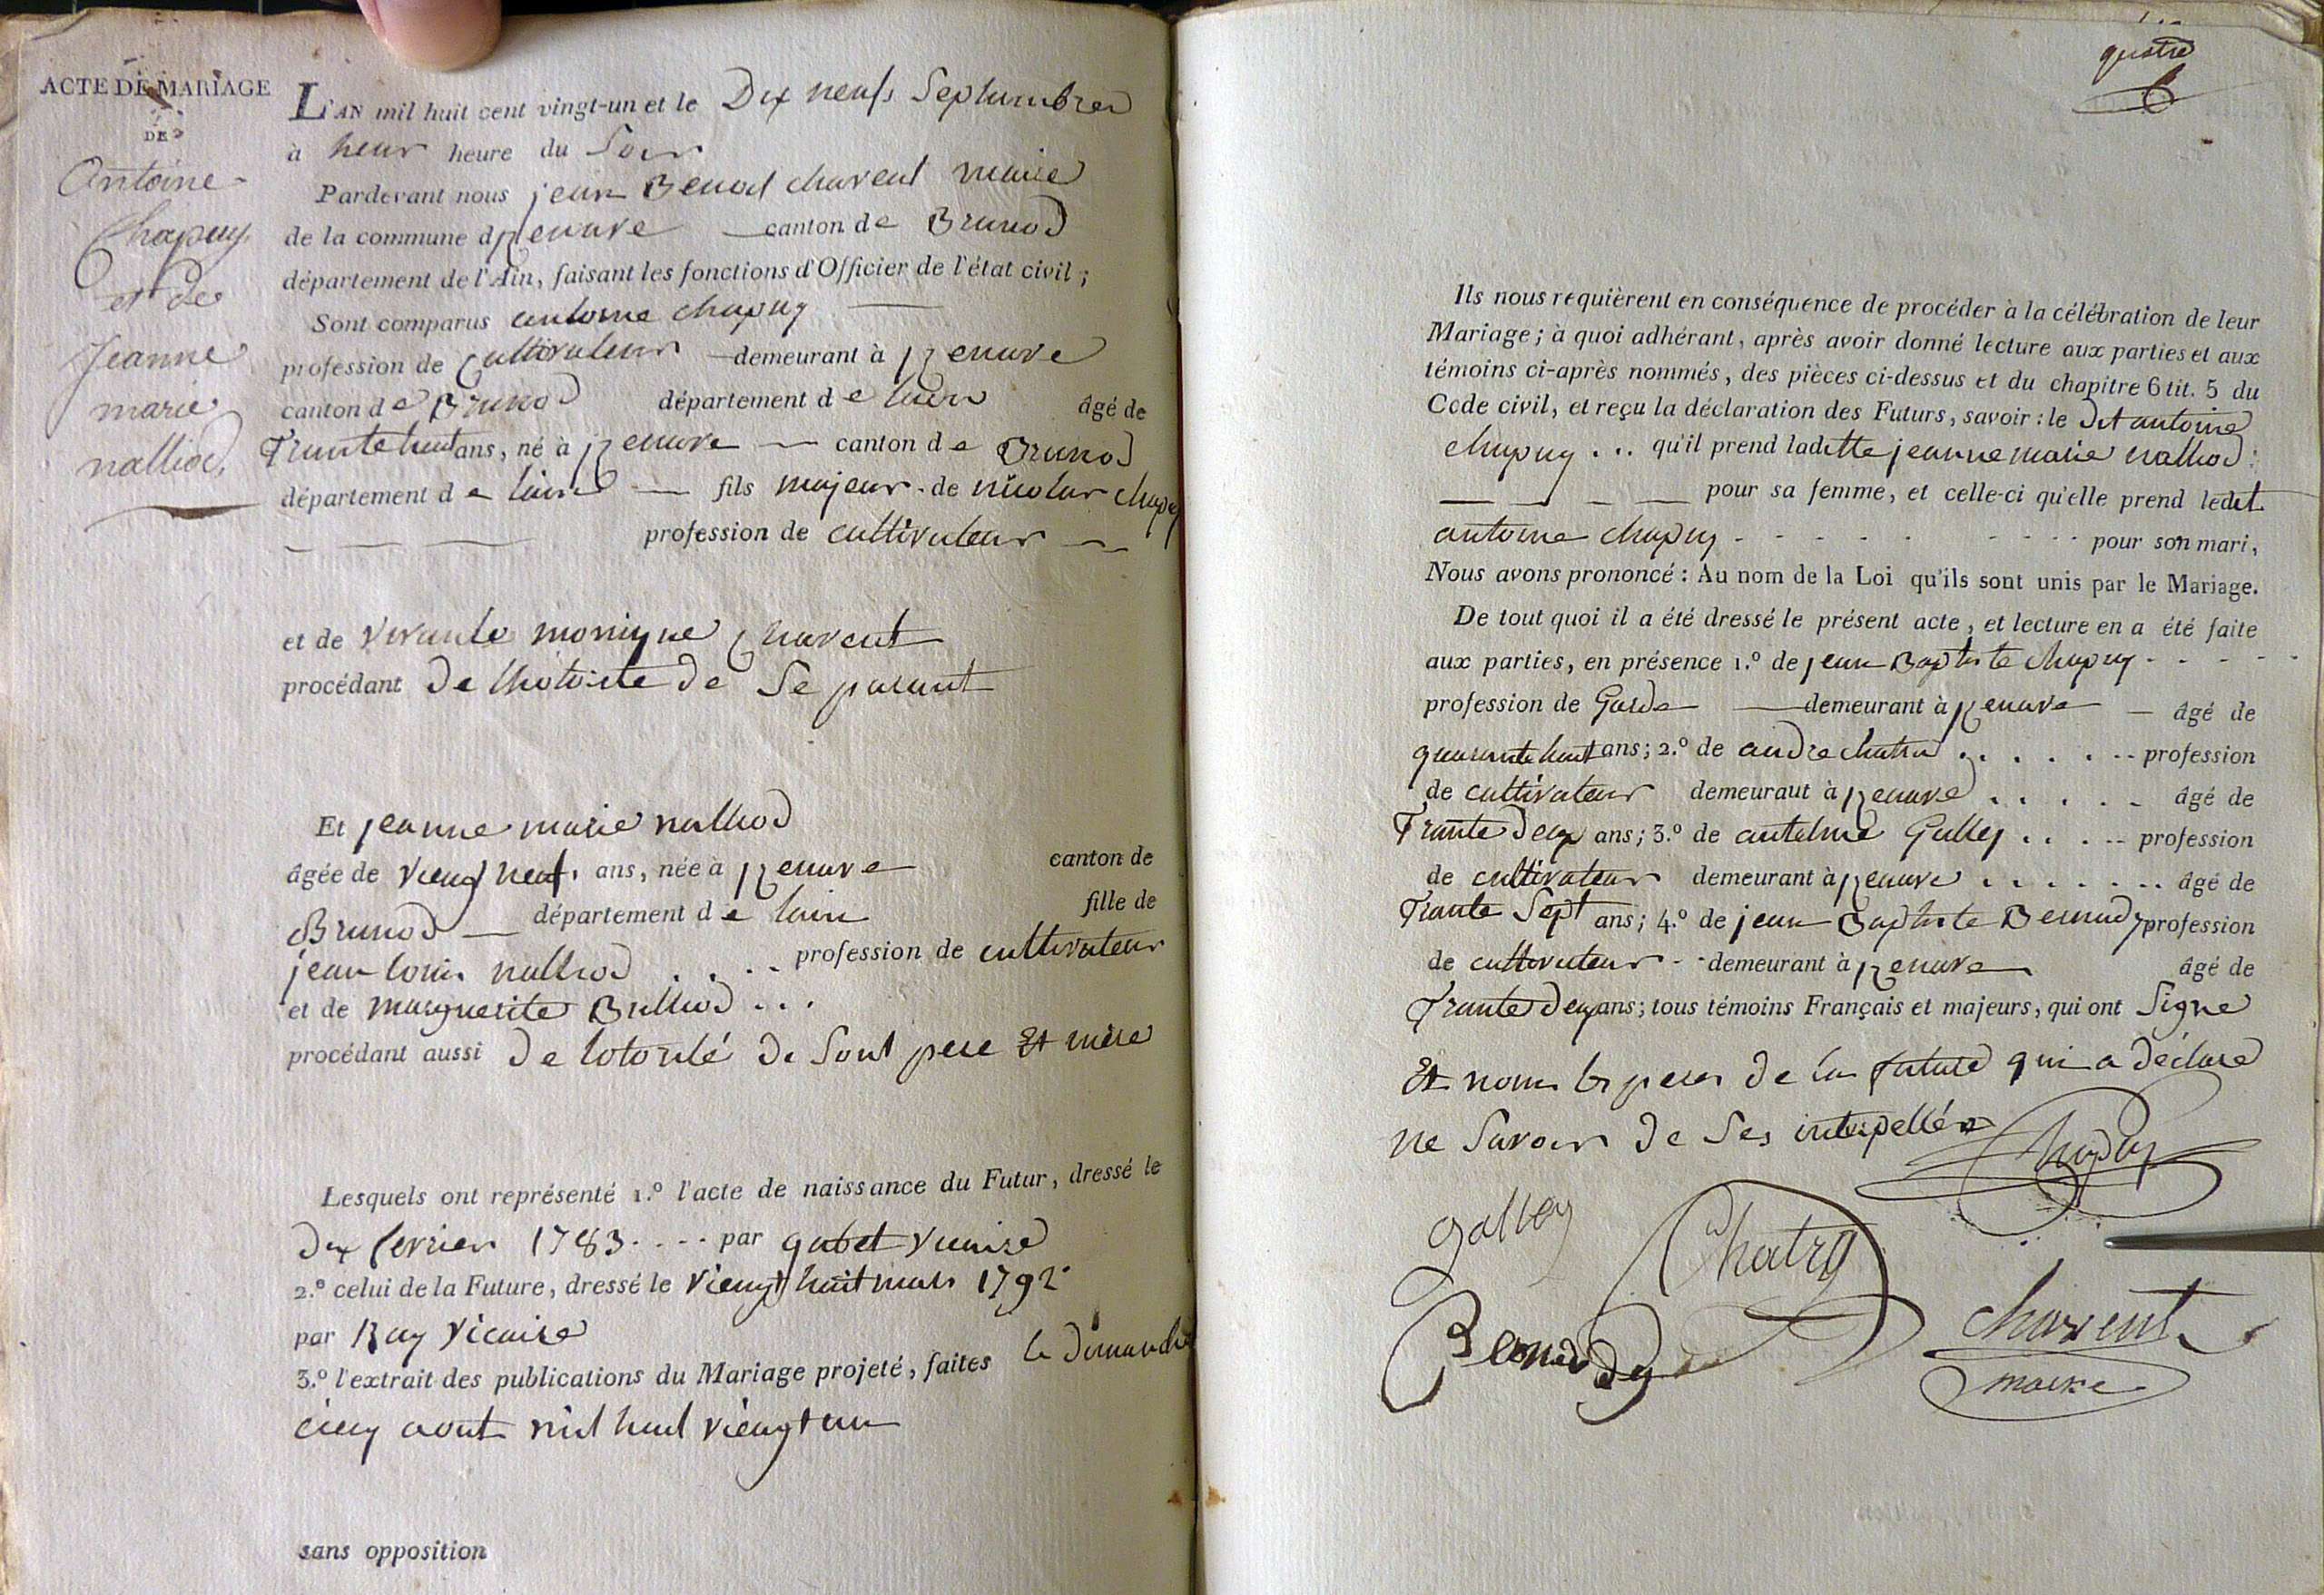 ACTE DE MARIAGE
DE
Antoine
Chapuy
et de
Jeanne
marie
nalliod
L'AN mil huit cent vingt-un et le Dix neufs Septambres
à heure du Soir
Pardevant nous jean Benoit charvent maire
de la commune d canton de Brunod
département de l'Ain, faisant les fonctions d'Officier de l'état civil;
Sont comparus antoine chapuy
profession de Cultivateur demeurant à
canton de Brunod département de lain âgé de
Trante huit ans, né à canton de Brunod
département de lain fils majeur de nicolas chapuy
profession de cultivateur
et de vivante monique Charvent
procédant De lhotorite de Se parant
Et jeanne marie nalliod
âgée de viengt neuf ans, née à canton de
Brunod département de lain fille de
jean louis nalliod profession de cultivateur
et de marguerite Bralliod
procédant aussi De lotorité de Sont pere Et mère
Lesquels ont représenté 1.º l'acte de naissance du Futur, dressé le
Dix fevrier 1783 .... par gubet vicaire
2.º celui de la Future, dressé le viengt huit mars 1792
par Ray vicaire
3.º l'extrait des publications du Mariage projeté, faites le dimanche
cinq aout mil huit viengt un
sans opposition
quatre
Ils nous requièrent en conséquence de procéder à la célébration de leur
Mariage; à quoi adhérant, après avoir donné lecture aux parties et aux
témoins ci-après nommés, des pièces ci-dessus et du chapitre 6 tit. 5 du
Code civil, et reçu la déclaration des Futurs, savoir: le dit antoine
chapuy ... qu'il prend laditte jeanne marie nalliod
pour sa femme, et celle-ci qu'elle prend ledit
antoine chapuy pour son mari,
Nous avons prononcé: Au nom de la Loi qu'ils sont unis par le Mariage.
De tout quoi il a été dressé le présent acte, et lecture en a été faite
aux parties, en présence 1.º de jean Baptiste chapuy
profession de Garde demeurant à âgé de
quarante huit ans; 2.º de andre chatra profession
de cultivateur demeuraut à âgé de
Trante Deux ans; 3.º de antelme Galley profession
de cultivateur demeurant à âgé de
Trante Sept ans; 4.º de jean Baptiste Bernudy profession
de cultivateur demeurant à âgé de
Trante Deux ans; tous témoins Français et majeurs, qui ont Signe
Et nom le peres de la future qui a déclare
ne Savoir de Ses interpellés
Chapuy
galley
Chatra
Bernudy
charvent
maire